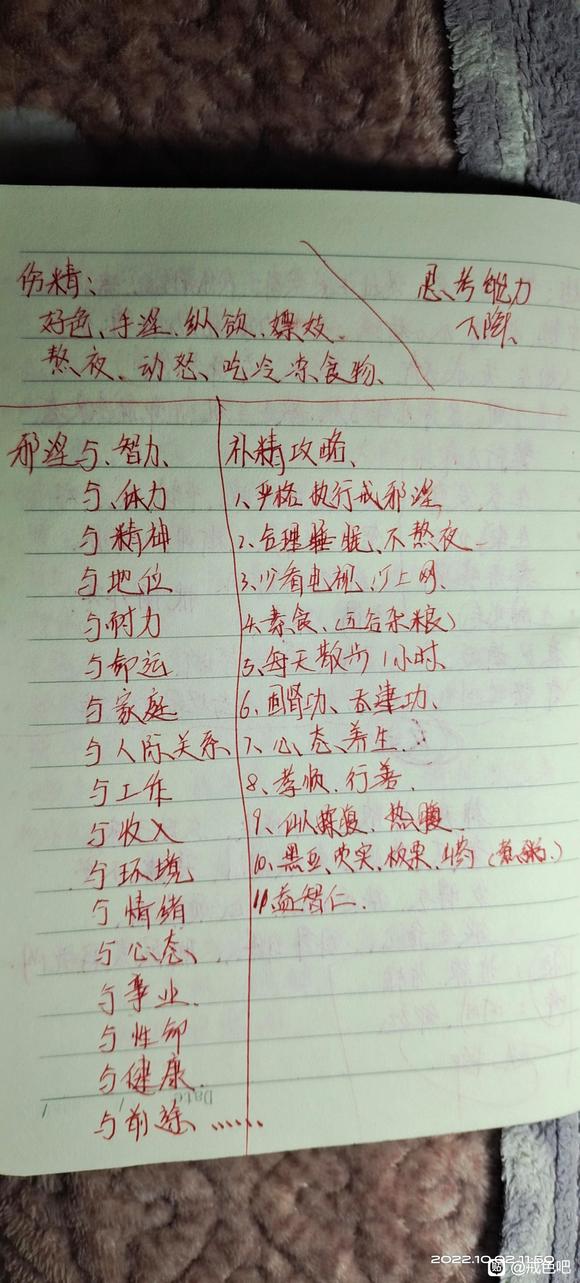 伤精:
好色、手淫、纵欲、嫖妓、
熬夜、动怒、吃冷冻食物、
思考能力
下降、
邪淫与、智力、
与、体力
与精神
与地位
与耐力
与命运
与家庭
与人际关系、
与工作
与收入
与环境
与情绪
与心态、
与事业.
与性命
与健康
与前途、......
补精攻略、
1、严格执行戒邪淫、
2、合理睡眠、不熬夜
3、少看电视、少上网、
4、素食、(五谷杂粮)
5、每天散步1小时、
6、固肾功、吞津功、
7、心、态、养生.
8、孝顺、行善.
9、仙人揉腹、热腹.
10、黑豆、芡实、板栗、山药(煮粥.)
11、益智仁.
Date
2022.10.02 11:50
贴 @戒色吧